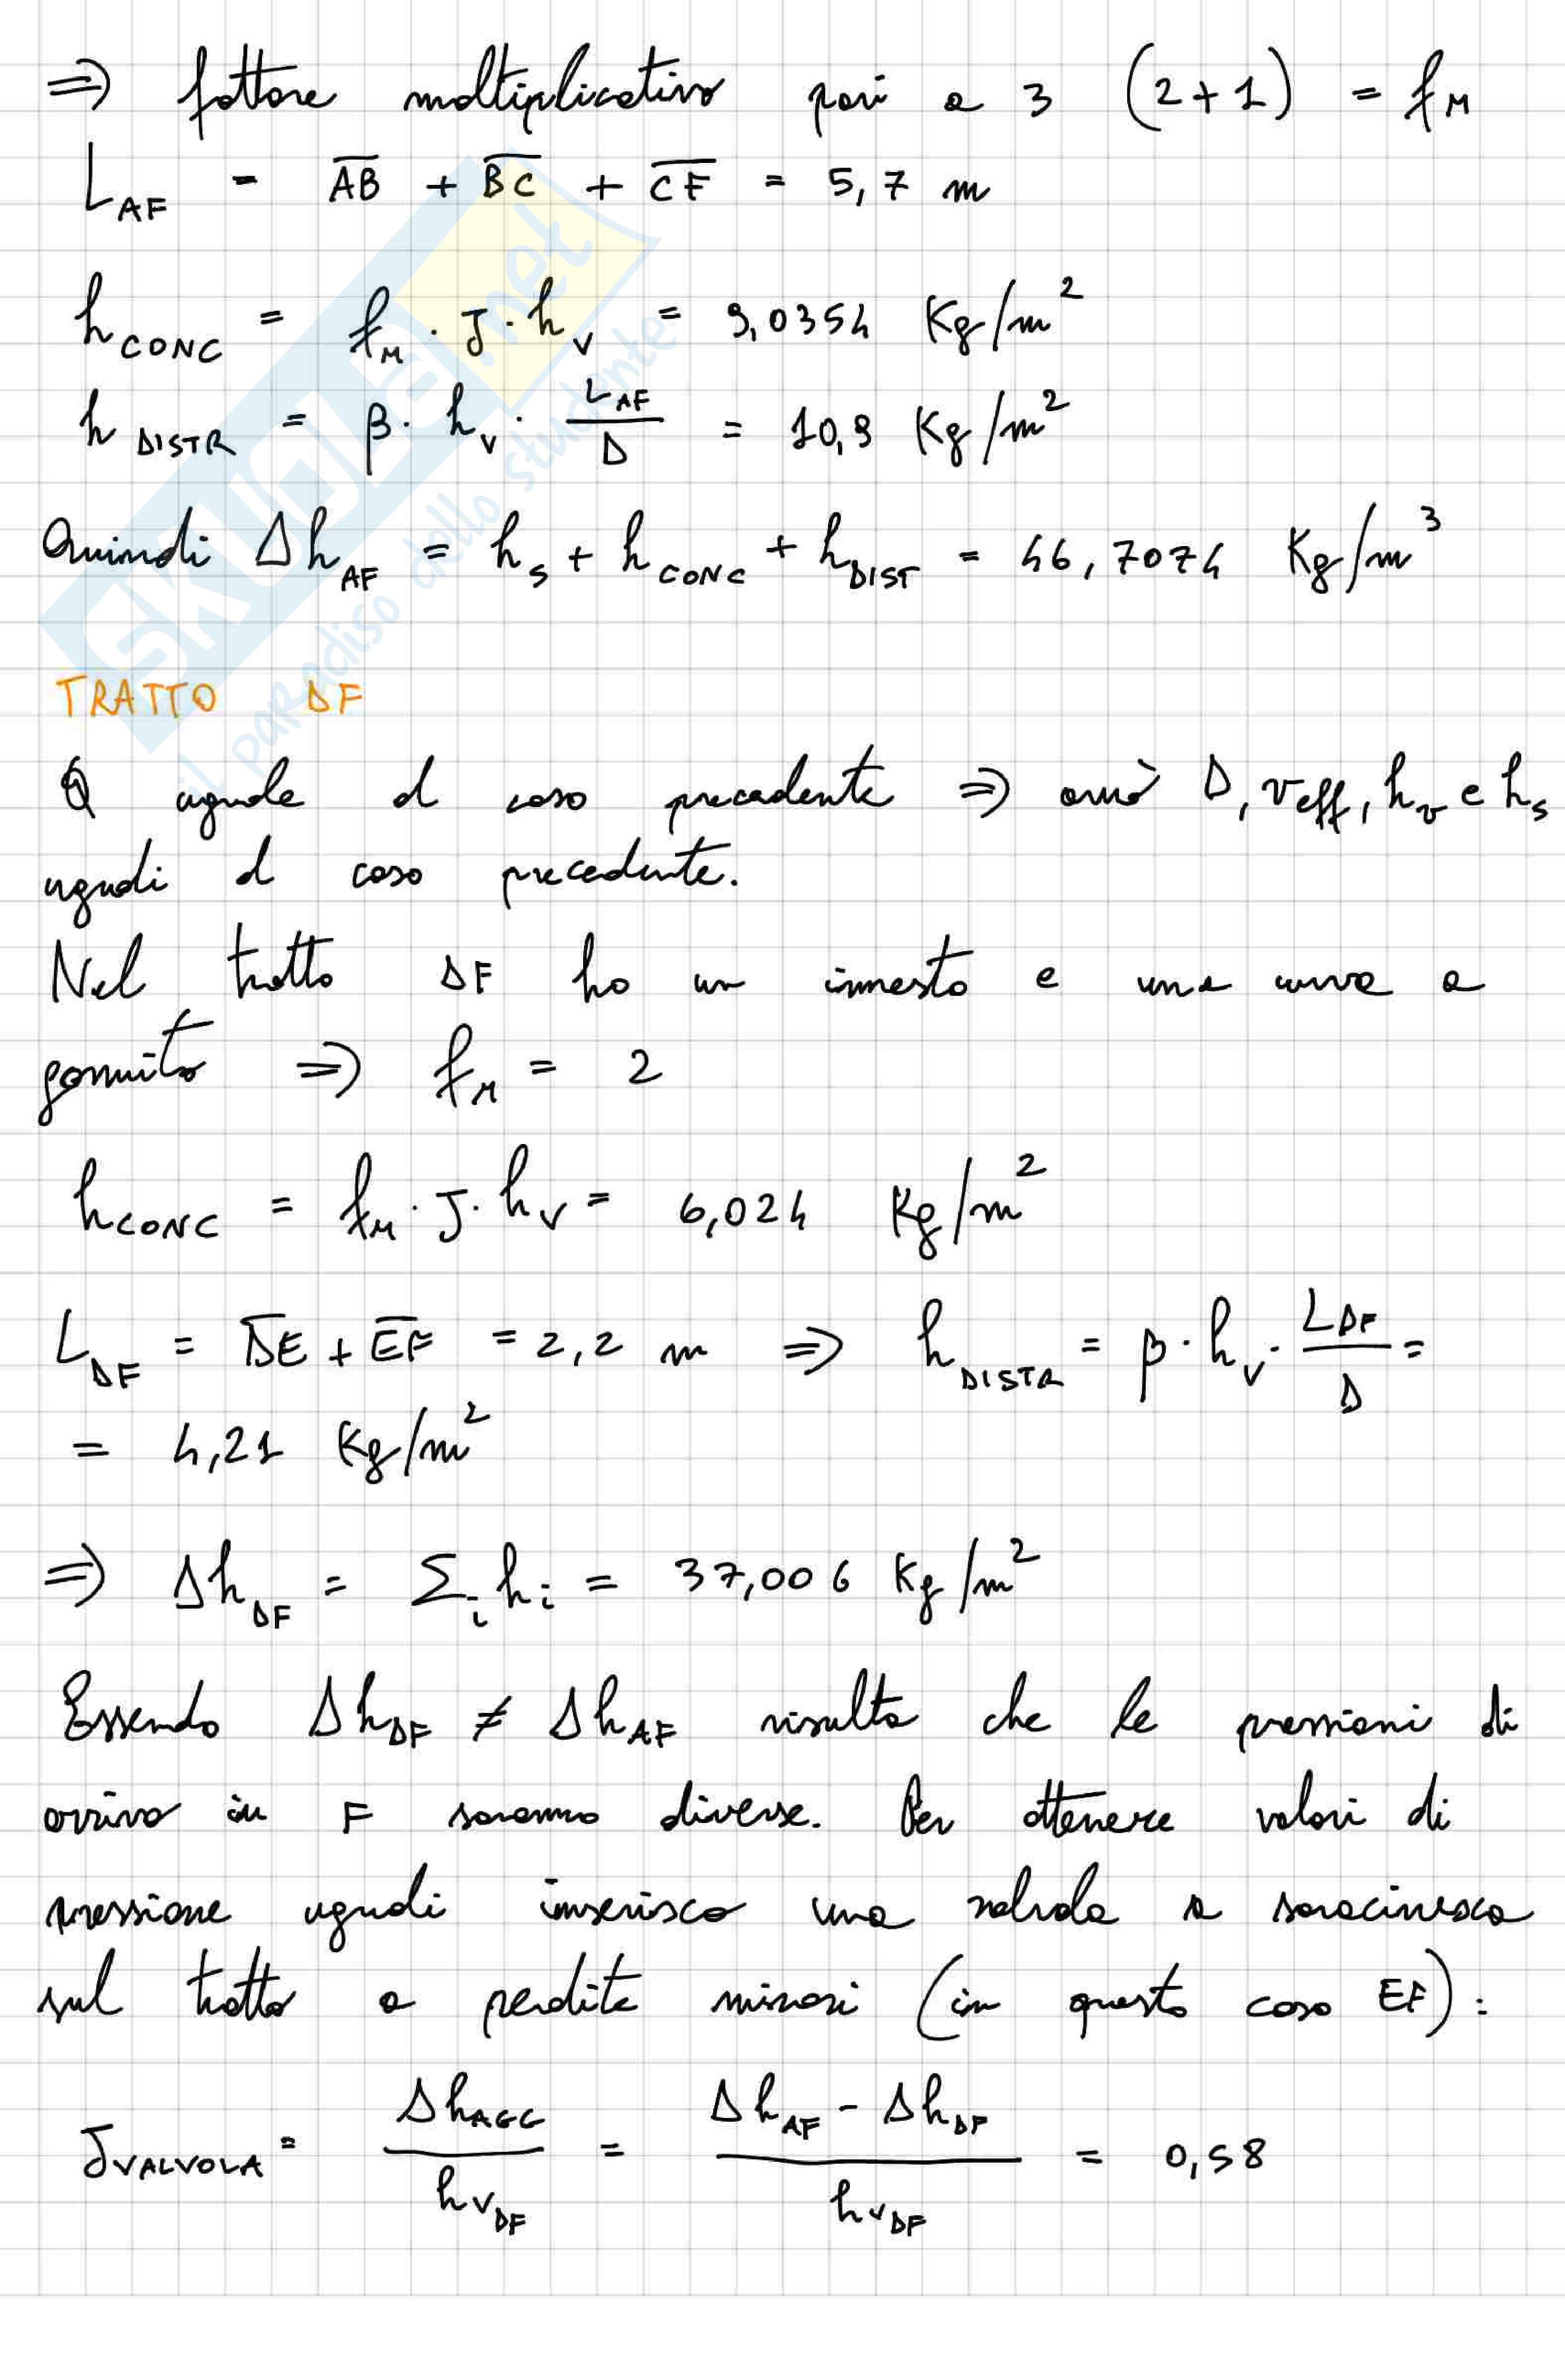 ⇒ fattore moltiplicativo pari a 3 (2+1) = f_M
L_AF = AB + BC + CF = 5,7 m
h_CONC = f_M · J · h_V = 9,0354 Kg/m²
h_DISTR = β · h_V · L_AF/D = 10,9 Kg/m²
Quindi Δh_AF = h_S + h_CONC + h_DIST = 46,7074 Kg/m³
TRATTO DF
Q uguale al caso precedente ⇒ avrò D, veff, h_v e h_s
uguali al caso precedente.
Nel tratto DF ho un innesto e una curva a
gomito ⇒ f_M = 2
h_CONC = f_M · J · h_V = 6,024 Kg/m²
L_DF = DE + EF = 2,2 m ⇒ h_DISTR = β · h_V · L_DF/D =
= 4,21 Kg/m²
⇒ Δh_DF = Σ_i h_i = 37,006 Kg/m²
Essendo Δh_DF ≠ Δh_AF risulta che le pressioni di
arrivo in F saranno diverse. Per ottenere valori di
pressione uguali inserisco una valvola a saracinesca
sul tratto a perdite minori (in questo caso EF):
J_VALVOLA = Δh_AGG/h_V_DF = (Δh_AF - Δh_DF)/h_V_DF = 0,58
SKUOLA.net
il paradiso dello studente